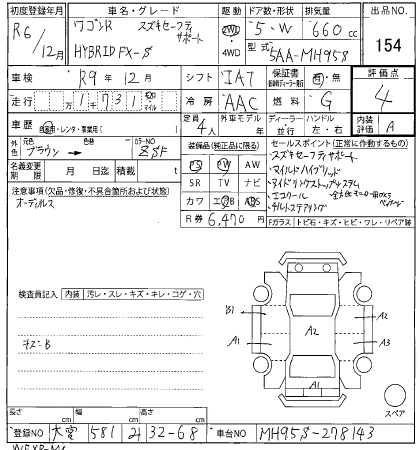 初度登録年月
車名・グレード
駆動
ドア数・形状
排気量
出品NO.
R6/12月
ワゴンR スズキセーフティサポート
HYBRID FX-S
2WD
4WD
5・W
660 cc
型式
5AA-MH95S
154
車検
R9年12月
シフト
IAT
保証書
有・無
評価点
4
走行
1731
マイル
冷房
AAC
燃料
G
車歴
自家用・レンタ・事業用( )
定員
4人
外車モデル
年
ディーラー
並行
ハンドル
左・右
内装評価
A
外色
元色
ブラウン
色替
カラーNO
ZSF
装備品(純正品に限る)
セールスポイント(正常に作動するもの)
名義変更期限
月 日迄
積載
t
PS PW AW
SR TV ナビ
カワ エアB ABS
R券 6,470円
・スズキセーフティサポート
・マイルドハイブリッド
・アイドリングストップシステム
・エコクール
・チルトステアリング
注意事項(欠品・修復・不具合箇所および状態)
オーディオレス
Fガラス
トビ石・キズ・ヒビ・ワレ・リペア跡
検査員記入
内装
汚レ・スレ・キズ・キレ・コゲ・穴
キズB
B1
A1
A2
A2
A3
A1
スペア
長さ cm
幅 cm
高さ cm
登録NO
581
32-68
車台NO
MH95S-278143